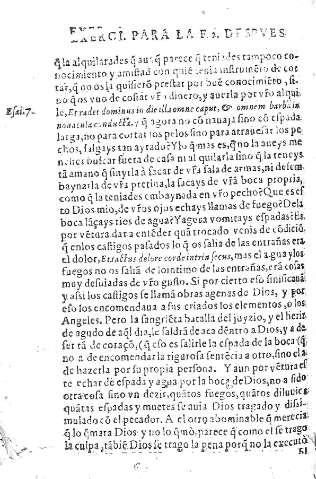 EXERCI. PARA LA F.2. DESPVES
q̃ la alquilarades q̃ aun q̃ parece q̃ teniades tampoco co-
nocimiento y amistad con quiẽ tenia instrumẽto de cor
tar, q̃ no os la quisierõ prestar por buẽ conocimiẽto, si-
no q̃ os vuo de costar vr̃o dinero, y auerla por vr̃o alqui
le, Et radet dominus in die illa omne caput, & omnem barbã in
Esai.7. nouacula conducta. y q̃ agora no cõ nauaja sino cõ espada
larga, no para cortar los pelos sino para atrauesar los pe
chos, salgays tan ayrado? Y lo q̃ mas es, q̃ no la aueys me
nester buscar fuera de casa ni al quilarla sino q̃ la teneys
tã a mano q̃ sin yrla à sacar de vr̃a sala de armas, ni desem
baynarla de vr̃a pretina, la sacays de vr̃a boca propria,
como q̃ la teniades embaynada en vr̃o pecho? Que es es
to Dios mio, de vr̃os ojos echays llamas de fuego? De la
boca lãçays rios de agua? Y agesa vomitays espadas? es,
por vẽtura dar a entẽder quã trocado venis de cõdiciõ,
q̃ en los castigos pasados lo q̃ os salia de las entrañas era
el dolor, Et tactus dolore cordis intrinsecus, mas el agua y los
fuegos no os saliã de lo intimo de las entrañas, erã cosas
muy desuiadas de vr̃o gusto. Si por cierto eso sinificauã
y asi los castigos se llamã obras agenas de Dios, y por
eso los encomendaua a sus criados los elementos, o los
Angeles. Pero la sangriẽta batalla del juyzio, y el herir
de agudo de aq̃l dia, se saldrã de aca dẽntro a Dios, y a de
ser tã de coraçõ, (q̃ eso es salirle la espada de la boca) q̃
no a de encomendar la rigurosa sentẽcia a otro, sino el a
de hazerla por su propia persona. Y aun por vẽtura es
te echar de espada y agua por la boca de Dios, no a sido
otra cosa sino vn dezir, quãtos fuegos, quãtos diluuios
quãtas espadas y muertes se auia Dios tragado y disi-
mulado cõ el pecador. A el otro abominable q̃ merecia
q̃ lo q̃mara Dios y no lo q̃mò, parece q̃ como el se trago
la culpa, tãbiẽ Dios se trago la pena porq̃ no la executò